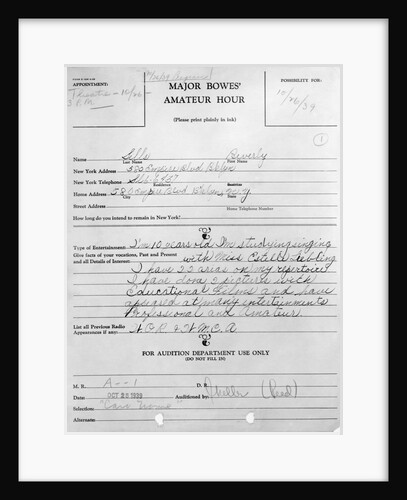 APPOINTMENT:
MAJOR BOWES'
AMATEUR HOUR
(Please print plainly in ink)
POSSIBILITY FOR:
10/26/39
1
Name Sills Beverly
Last Name First Name
New York Address Empire Blvd
New York Telephone
Residence Business
Home Address Empire Blvd
City
Street Address
Home Telephone Number
How long do you intend to remain in New York?
Type of Entertainment: I'm 10 years old I'm studying singing
Give facts of your vocations, Past and Present with Miss Estelle Liebling
and all Details of Interest: I have 22 arias on my repertoire
I have done 2 pictures with
Educational Films and have
appeared at many entertainments
Professional and Amateur.
List all Previous Radio
Appearances if any: W.O.R. & W.M.C.A
FOR AUDITION DEPARTMENT USE ONLY
(DO NOT FILL IN)
M. R. A--1 D. R.
Date: OCT 26 1939 Auditioned by (Read)
Selection: "Caro Nome"
Alternate: